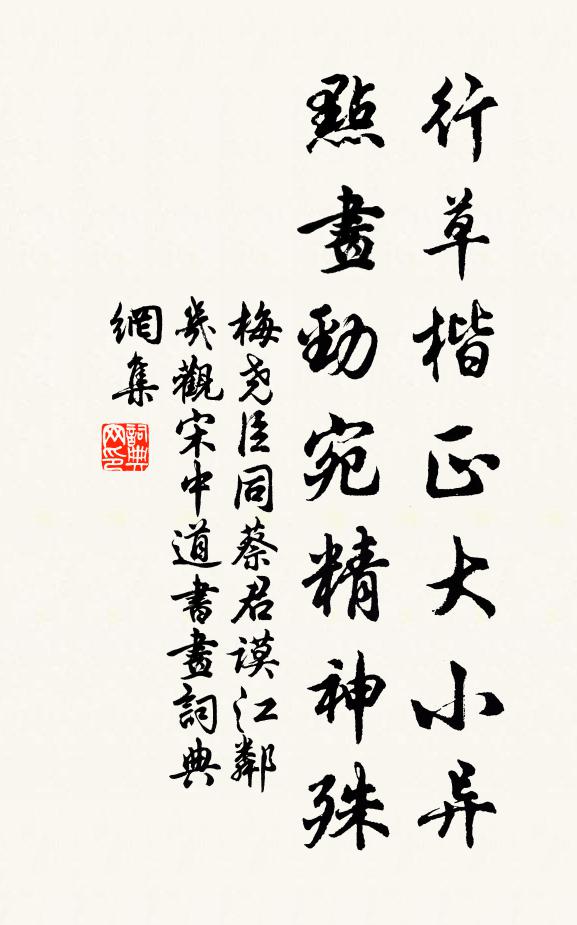 行草楷正大小异
點畫勁宛精神殊
梅尧臣同蔡君謨江鄰
幾觀宋中道書畫詞典
網集
詞典
网印